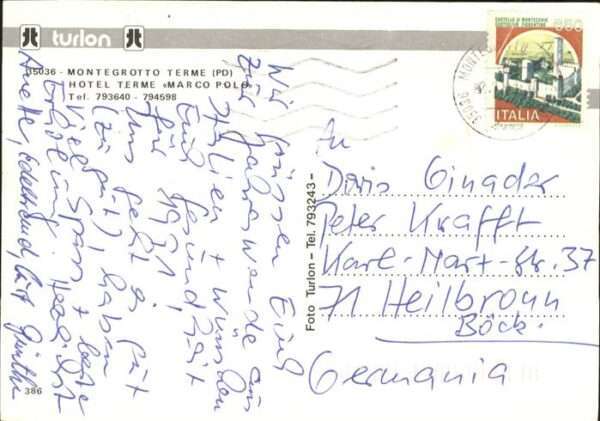 turlon
35036 - MONTEGROTTO TERME (PD)
HOTEL TERME «MARCO POLO»
Tel. 793640 - 794598
CASTELLO DI MONTECCHIO
CASTIGLION FIORENTINO
650
ITALIA
Wir grüssen Euch
zur Jahreswende aus
Italien + wünschen
Euch Gesundheit
für 1991.
Uns geht es gut
(zu gut), haben
viel Spass + beste
Erholung. Herzlichst
Anette, Edeltraud,
386
Foto Turlon - Tel. 793243
An
Doris Ginader
Peter Krafft
Karl-Marx-Str. 37
71 Heilbronn
Böck.
Germania